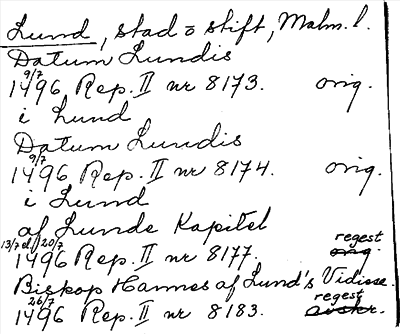 Lund, stad o stift, Malm. l.
Datum Lundis
9/7
1496 Rep. II nr 8173. orig.
i Lund
Datum Lundis
9/7
1496 Rep. II nr 8174. orig.
i Lund
af Lunde Kapitel
13/7 el. 20/7 regest
1496 Rep. II nr 8177. orig.
Biskop Hannes af Lund's Vidisse.
26/7 regest
1496 Rep. II nr 8183. avskr.